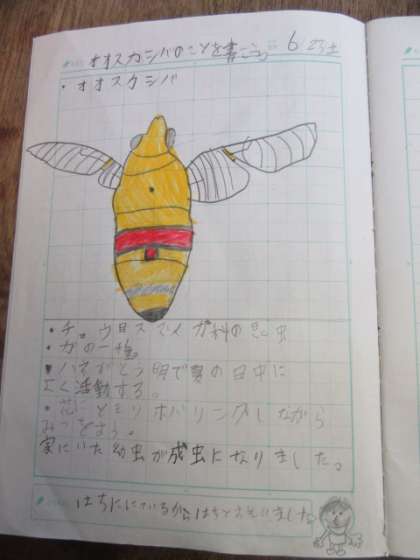 オオスカシバのことを書こう 6 23 土
・オオスカシバ
・チョウ目スズメガ科の昆虫
・ガの一種。
・ハネがとう明で夏の日中に
よく活動する。
・花にとまりホバリングしながら
みつをすう。
家にいた幼虫が成虫になりました。
はちににているからはちと